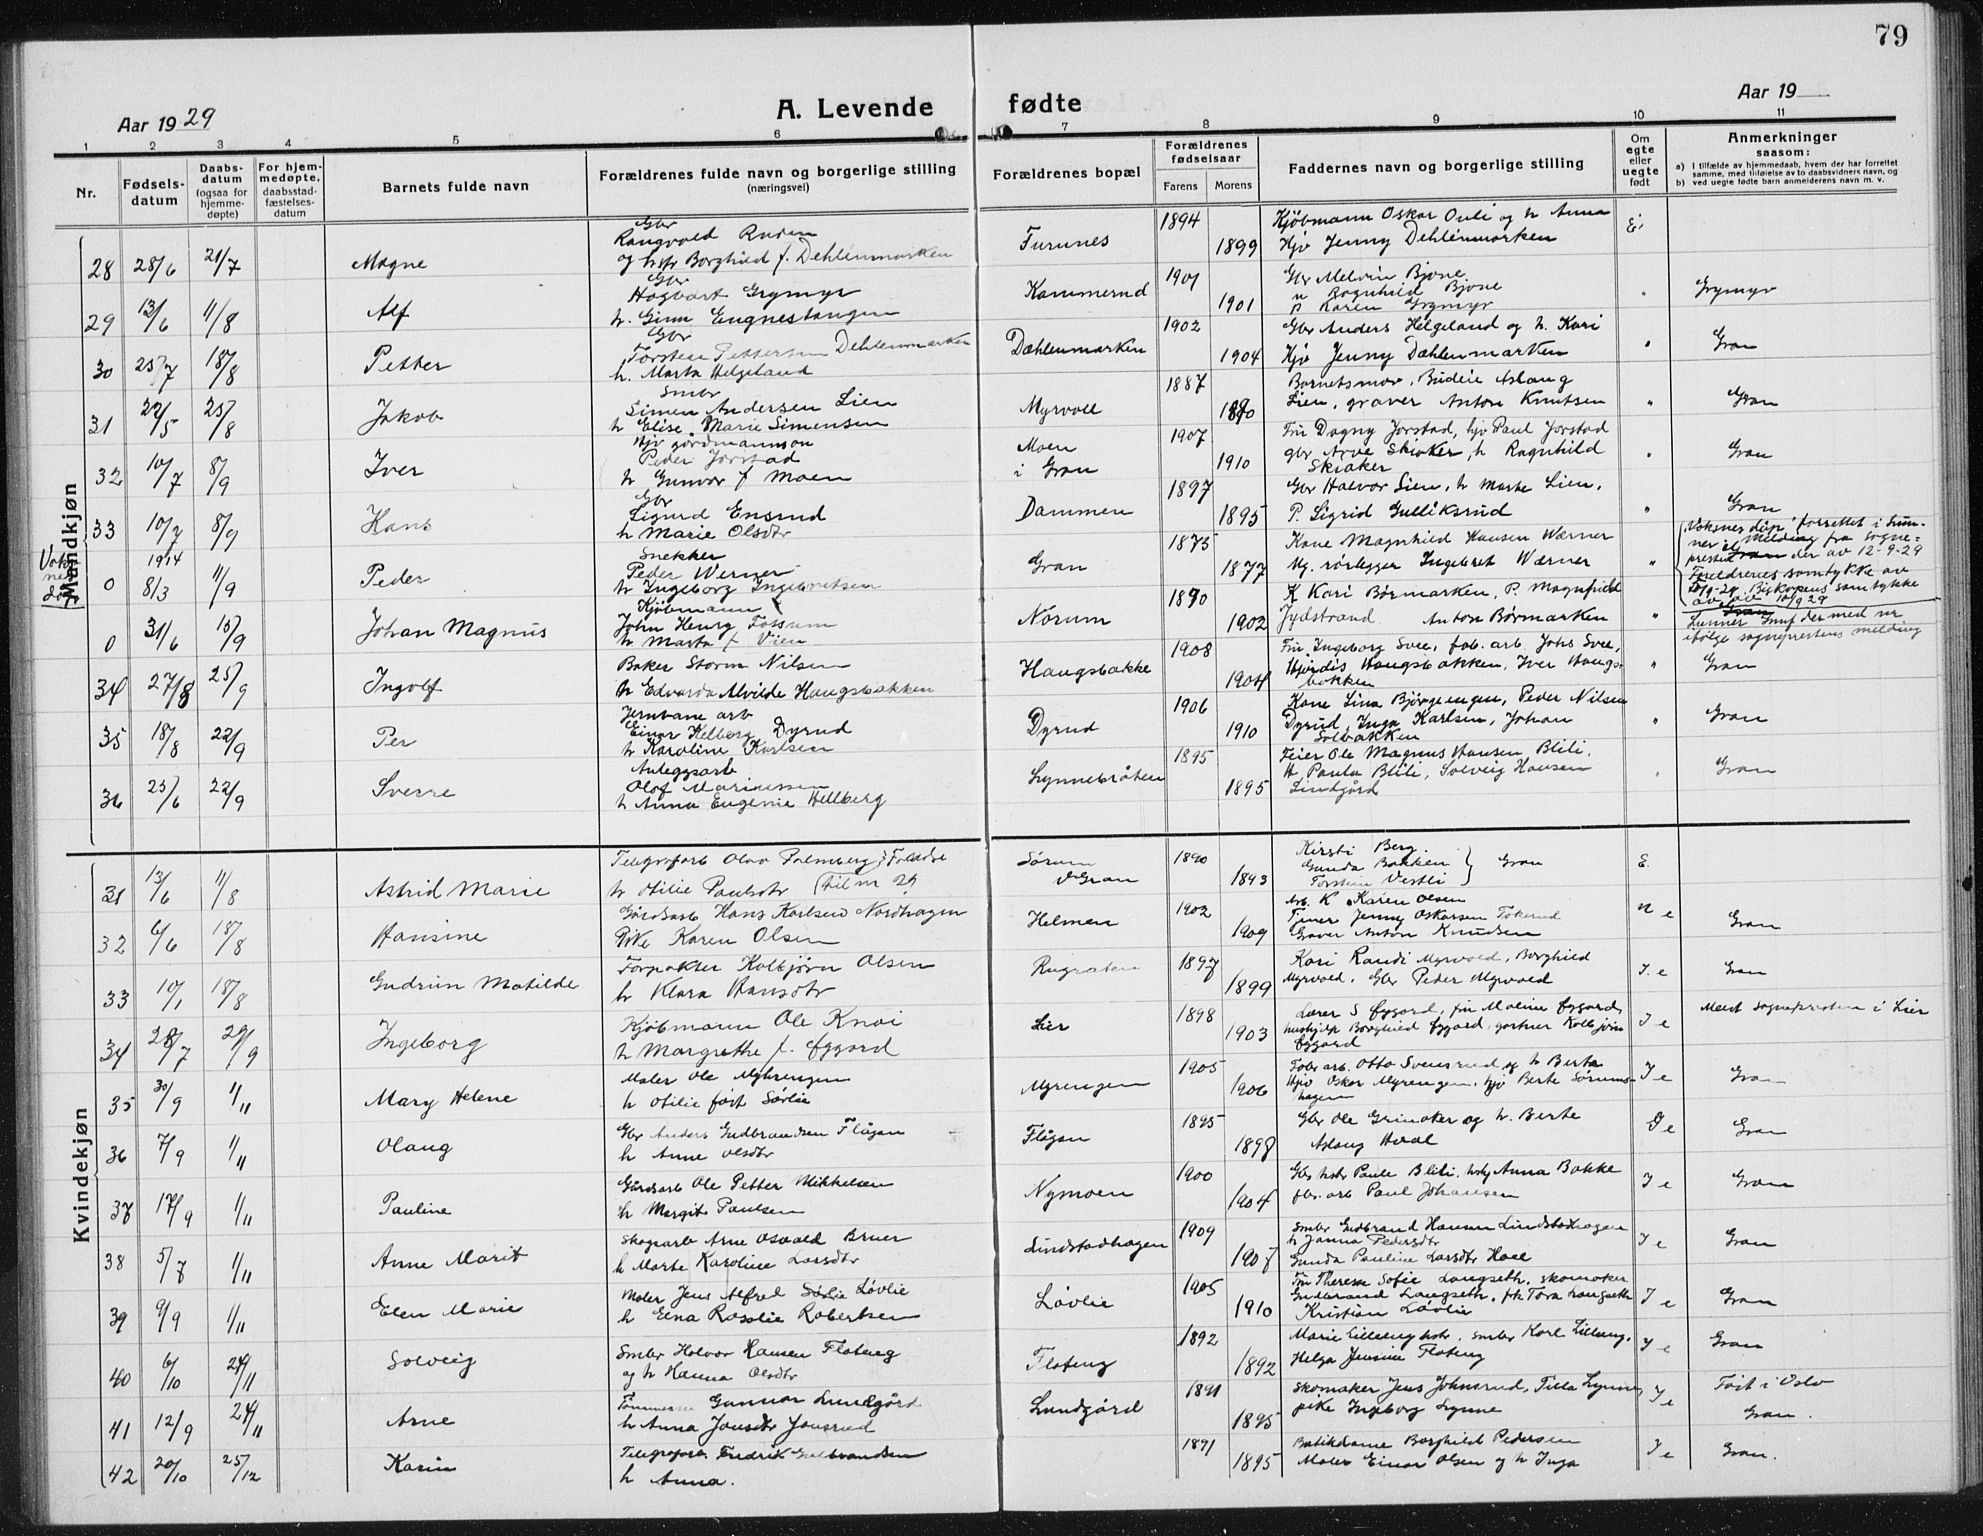 79
Aar 1929
A. Levende fødte
Aar 19
1 2 3 4 5 6 7 8 9 10 11
Nr.
Fødsels-datum
Daabs-datum (ogsaa for hjemme-døpte)
For hjem-medøpte, daabsstad-fæstelses-datum
Barnets fulde navn
Forældrenes fulde navn og borgerlige stilling (næringsvei)
Forældrenes bopæl
Forældrenes fødselsaar
Farens Morens
Faddernes navn og borgerlige stilling
Om egte eller uegte født
Anmerkninger saasom:
a) I tilfælde av hjemmedaab, hvem der har forrettet samme, med tilføielse av to daabsvidners navn, og
b) ved uegte fødte barn anmelderens navn m. v.
Mandkjøn
28 28/6 21/7 Magne
Gbr Rangvald Ruden
og hstr Borghild f. Dehlenmarken
Furunes 1894 1899
Kjøbmann Oskar Onli og h Anna
Hjv Jenny Dehlenmarken
29 13/6 11/8 Alf
Gbr Hagbart Grymyr
h. Ginn Engnestangen
Kammerud 1901 1901
Gbr Melvin Bjone
u Ragnhild Bjone
p Karen Grymyr
Grymyr
30 25/7 18/8 Petter
Gbr Torstein Pettersen Dehlenmarken
h. Marta Helgeland
Dæhlenmarken 1902 1904
Gbr Anders Helgeland og h. Kari
Hjv Jenny Dæhlenmarken
Gran
31 22/5 25/8 Jakob
Smbr Simen Andersen Lien
h Elise Marie Simensen
Myrvoll 1887 1890
Barnetsmor, Budeie Aslaug
Lien, graver Anton Knutsen
Gran
32 10/7 8/9 Iver
Hjv gårdmannssøn
Peder Jorstad
h Gunvor f Moen
Moen i Gran 1907 1910
Fru Dagny Jorstad, hjv Paul Jorstad
gbr Arve Skiaker, h Ragnhild
Skiaker
Gran
33 10/7 8/9 Hans
Gbr Sigurd Ensrud
h Marie Olsdtr
Dammen 1897 1895
Gbr Halvor Lien, h Marte Lien,
P. Sigrid Gulliksrud
Gran
0 1914 8/3 11/9 Peder
Snekker Peder Werner
h Ingeborg Ingebretsen
Gran 1875 1877
Kone Magnhild Hansen Wærner
Ug. rørlegger Ingebret Wærner
Voksnes dåp forrettet i Lunner
Melding fra sogneprestia der av 12-9-29
Foreldrenes samtykke av
Biskopens samtykke av 10/9 29
0 31/6 15/9 Johan Magnus
Kjøbmann John Henry Fossum
h Marta f Vien
Norum 1890 1902
K Kari Børmarken, P. Magnhild
Jydstrand Anton Børmarken
ifølge sogneprestens melding
34 27/8 25/9 Ingolf
Baker Storm Nilsen
h Edvarda Alvilde Haugsbakken
Haugsbakke 1908 1904
Fru Ingeborg Svee, fab. arb Johs Svee,
Hjørdis Haugsbakken, Iver Haugsbakken
Gran
35 18/8 22/9 Per
Jernbane arb
Einar Helberg Dyrud
h Karoline Karlsen
Dyrud 1906 1910
Kone Lina Bjørgengen, Peder Nilsen
Dyrud, Inga Karlsen, Johan
Solbakken
Gran
36 25/6 22/9 Sverre
Anleggsarb Olof Marinussen
h Anna Eugenie Hellberg
Lynnebråten 1895 1895
Feier Ole Magnus Hansen Blili,
H Paula Blili, Solveig Hansen
Lindgård
Gran
Kvindekjøn
31 13/6 11/8 Astrid Marie
Telegrafarb Olav Palmberg
h Otilie Paulsdtr
Sørum Gran 1890 1893
Kirsti Berg
Gunda Bakken
Torstein Vestli
Gran
E.
32 6/6 18/8 Hansine
Gårdsarb Hans Karlsen Nordhagen
Pike Karen Olsen
Helmen 1902 1909
Arb. K Karen Olsen
Tjener Jenny Oskarsen Tokerud
Graver Anton Knudsen
u e Gran
33 10/1 18/8 Gudrun Matilde
Forpakter Kolbjørn Olsen
h Klara Hansdtr
1897 1899
Kari Randi Myrvold, Borghild
Myrvold, Gbr Peder Myrvold
I. e Gran
34 28/7 29/9 Ingeborg
Kjøbmann Ole Knai
h Margrethe f. Eggard
Lier 1898 1903
Lærer S Eggard, fru Maline Eggard,
hushjelp Borghild Eggard, gartner Kolbjørn
Eggard
I e Meldt sogneprosten i Lier
35 30/9 1/11 Mary Helene
Maler Ole Myhrengen
h Otilie født Sørlie
Myrengen 1905 1906
Fabr arb. Otto Svensrud og h Berta
Hjv Oskar Myrengen, hjv Berte Sørumshagen
I e Gran
36 7/9 1/11 Olaug
Gbr Anders Gudbrandsen Flågan
h Anne Olsdtr
Flågan 1895 1898
Gbr Ole Grinaker og h. Berte
Aslaug Hval
I e Gran
37 17/9 1/11 Pauline
Gårdsarb Ole Petter Mikkelsen
h Margit Paulsen
Nymoen 1900 1904
Gbr hstr Paule Blili, hstr Anna Bakke
fbr. arb Paul Johansen
I e Gran
38 5/8 1/11 Anne Marit
Skogsarb Arne Osvald Bruer
h Marte Karoline Larsdtr
Lindstadhagen 1909 1907
Smbr Gudbrand Hansen Lindstadhagen
h Janna Pedersdtr
Gunda Pauline Larsdtr Hoel
I e Gran
39 9/9 1/11 Elen Marie
Maler Jens Alfred Løvlie
h Elna Rosalie Robertsen
Løvlie 1905 1910
Fru Therese Sofie Langseth, skomaker
Gudbrand Langseth, frk Tora Langseth
Kristian Løvlie
I e Gran
40 6/10 24/11 Solveig
Smbr Halvor Hansen Floteng
og h Hanna Olsdtr
Floteng 1892 1892
Marie Lilleeng hstr, smbr Karl Lilleeng,
Helga Jensine Floteng
I e Gran
41 12/9 24/11 Arne
Gunnar Lundgård
h Anna Jonsdtr Jonsrud
Lundgård 1891 1895
Skomaker Jens Johnsrud, Tilla Lynne,
pike Ingeborg Lynne
I e Født i Oslo
Gran.
42 20/10 25/12 Karin
Telegrafarb Fredrik Gulbrandsen
h Anna.
1891 1895
Butikdame Borghild Pedersen
Maler Einar Olsen og h Inga
I e Gran.